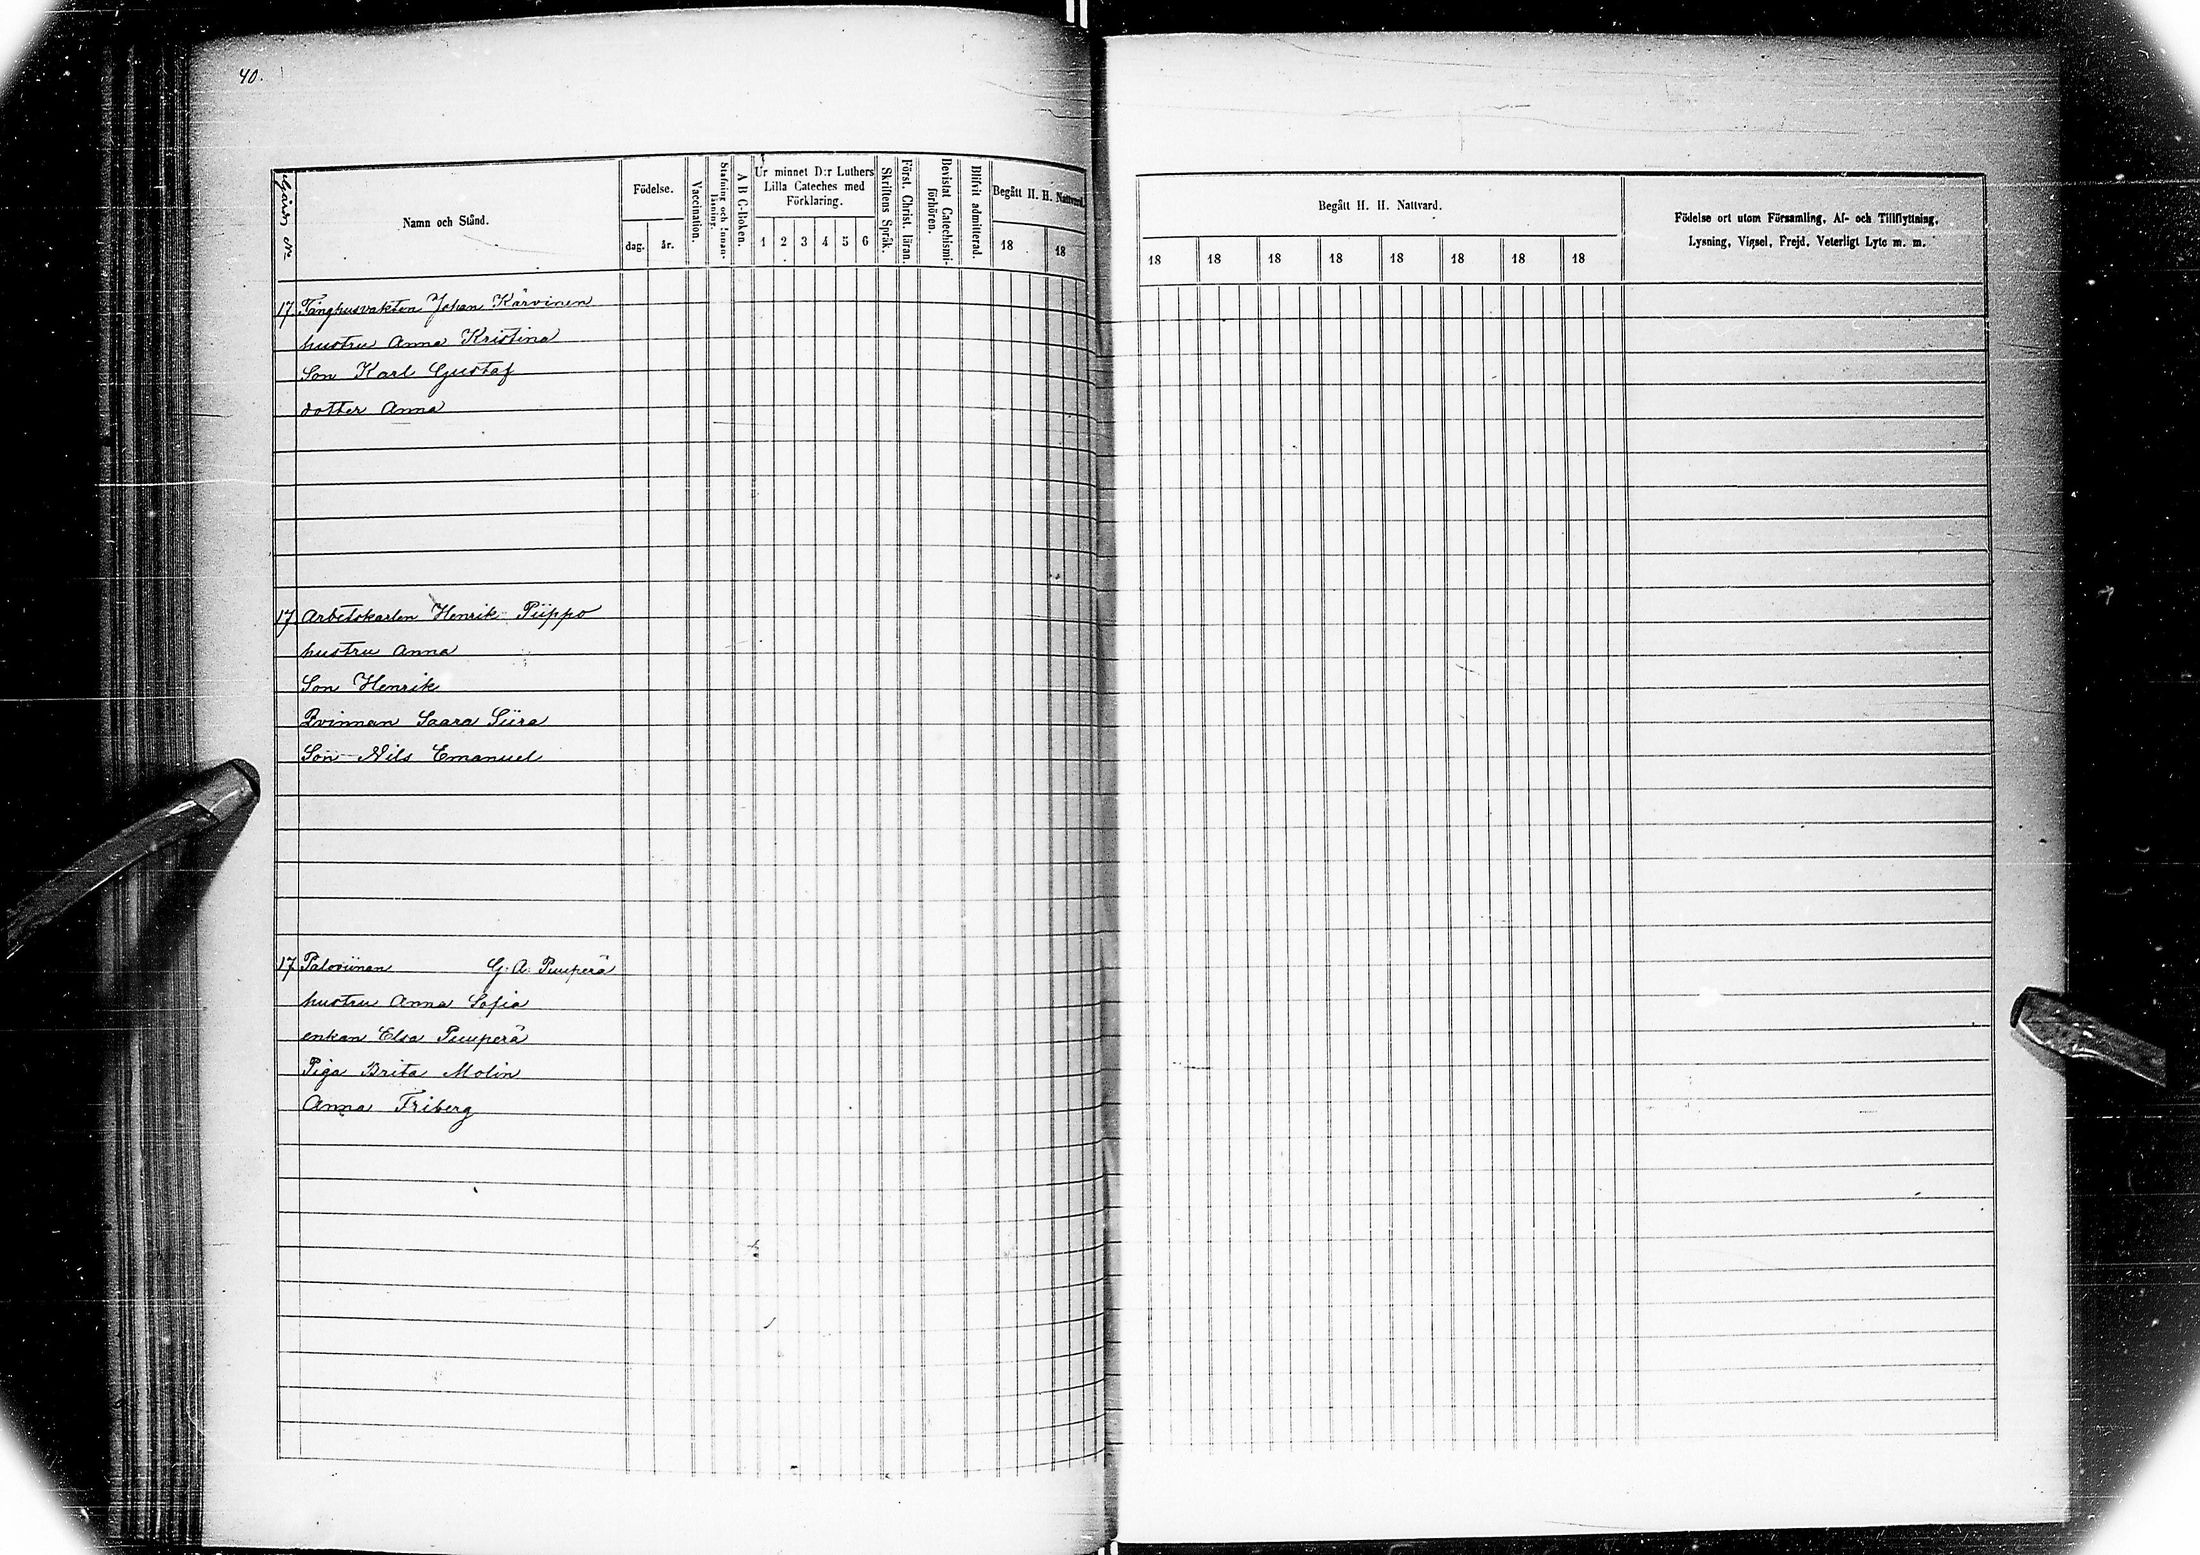 40.
Gårds №
Namn och Stånd.
Födelse.
dag.
år.
Vaccination.
Stafning och Innan-
läsning.
A B C-Boken.
Ur minnet D:r Luthers
Lilla Cateches med
Förklaring.
1 2 3 4 5 6
Skriftens Språk.
Först. Christ. läran.
Bevistat Catechismi-
förhören.
Blifvit admitterad.
Begått H. H. Nattvard.
18 18
17 Fånghusvakten Johan Kärvinen
hustru Anna Kristina
Son Karl Gustaf
dotter Anna
17 Arbetskarlen Henrik Piippo
hustru Anna
Son Henrik
Qvinnan Saara Siira
Son Nils Emanuel
17 G. A. Puuperä
hustru Anna Sofia
enkan Elsa Puuperä
Piga Brita Molin
Anna Friberg
Begått H. H. Nattvard.
18 18 18 18 18 18 18 18
Födelse ort utom Församling, Af- och Tillflyttning,
Lysning, Vigsel, Frejd, Veterligt Lyte m. m.